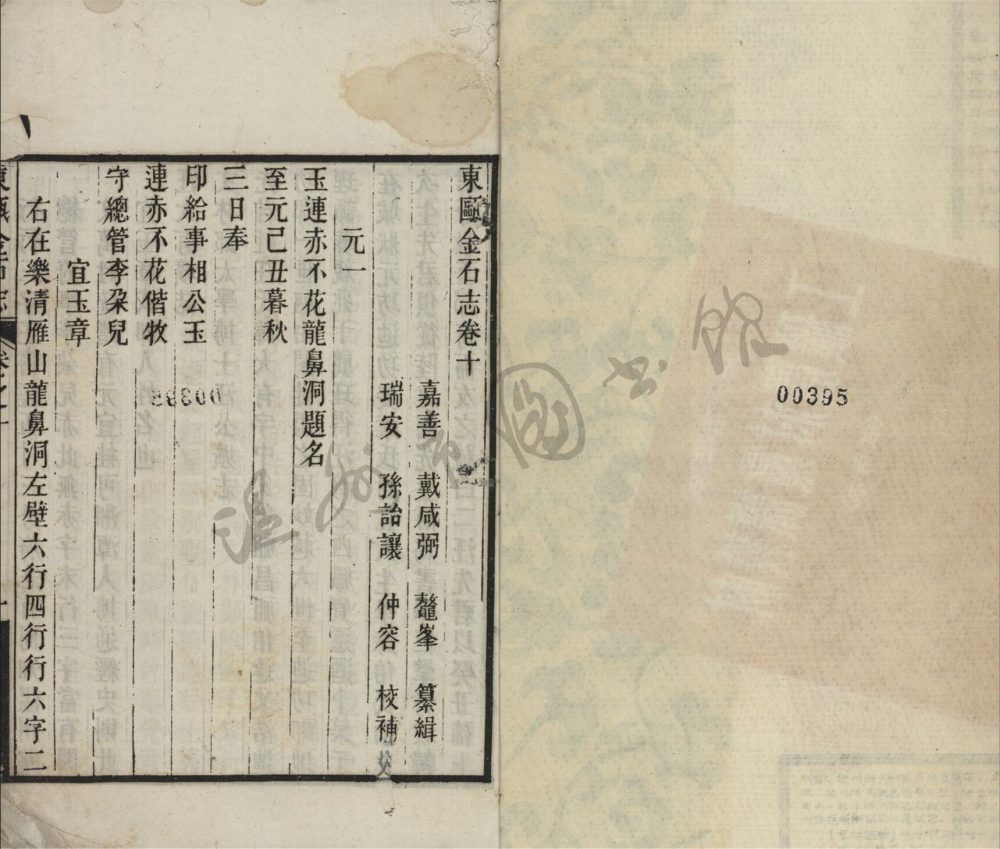 東甌金石志卷十
嘉善 戴咸弼 鼇峯 纂緝
瑞安 孫詒讓 仲容 校補
元一
玉連赤不花龍鼻洞題名
至元己丑暮秋
三日奉
印給事相公玉
連赤不花偕牧
守總管李朶兒
宜玉章
右在樂清雁山龍鼻洞左壁六行四行行六字二
00395